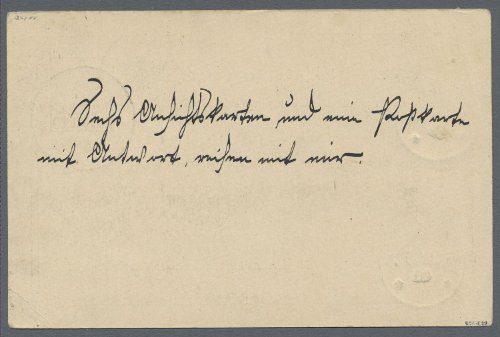 Sechs Ansichtskarten und eine Postkarte
mit Antwort, reisen mit mir.